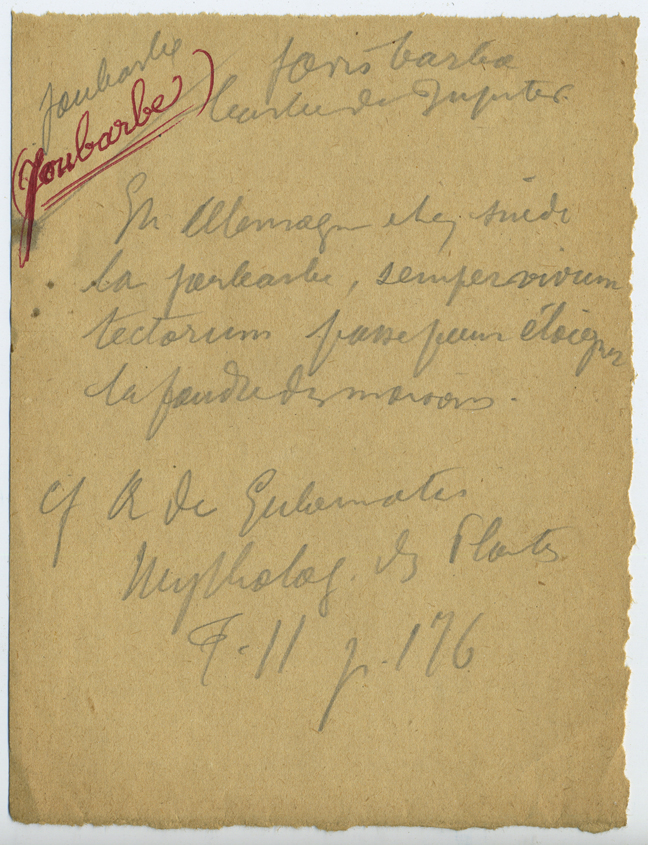 Joubarbe
(Joubarbe)
Jovis barba
barbe de Jupiter
En Allemagne et en Suède
la joubarbe, sempervivum
tectorum passe pour éloigner
la foudre des maisons.
cf A de Gubernatis
Mytholog. des Plantes
T. II p. 176